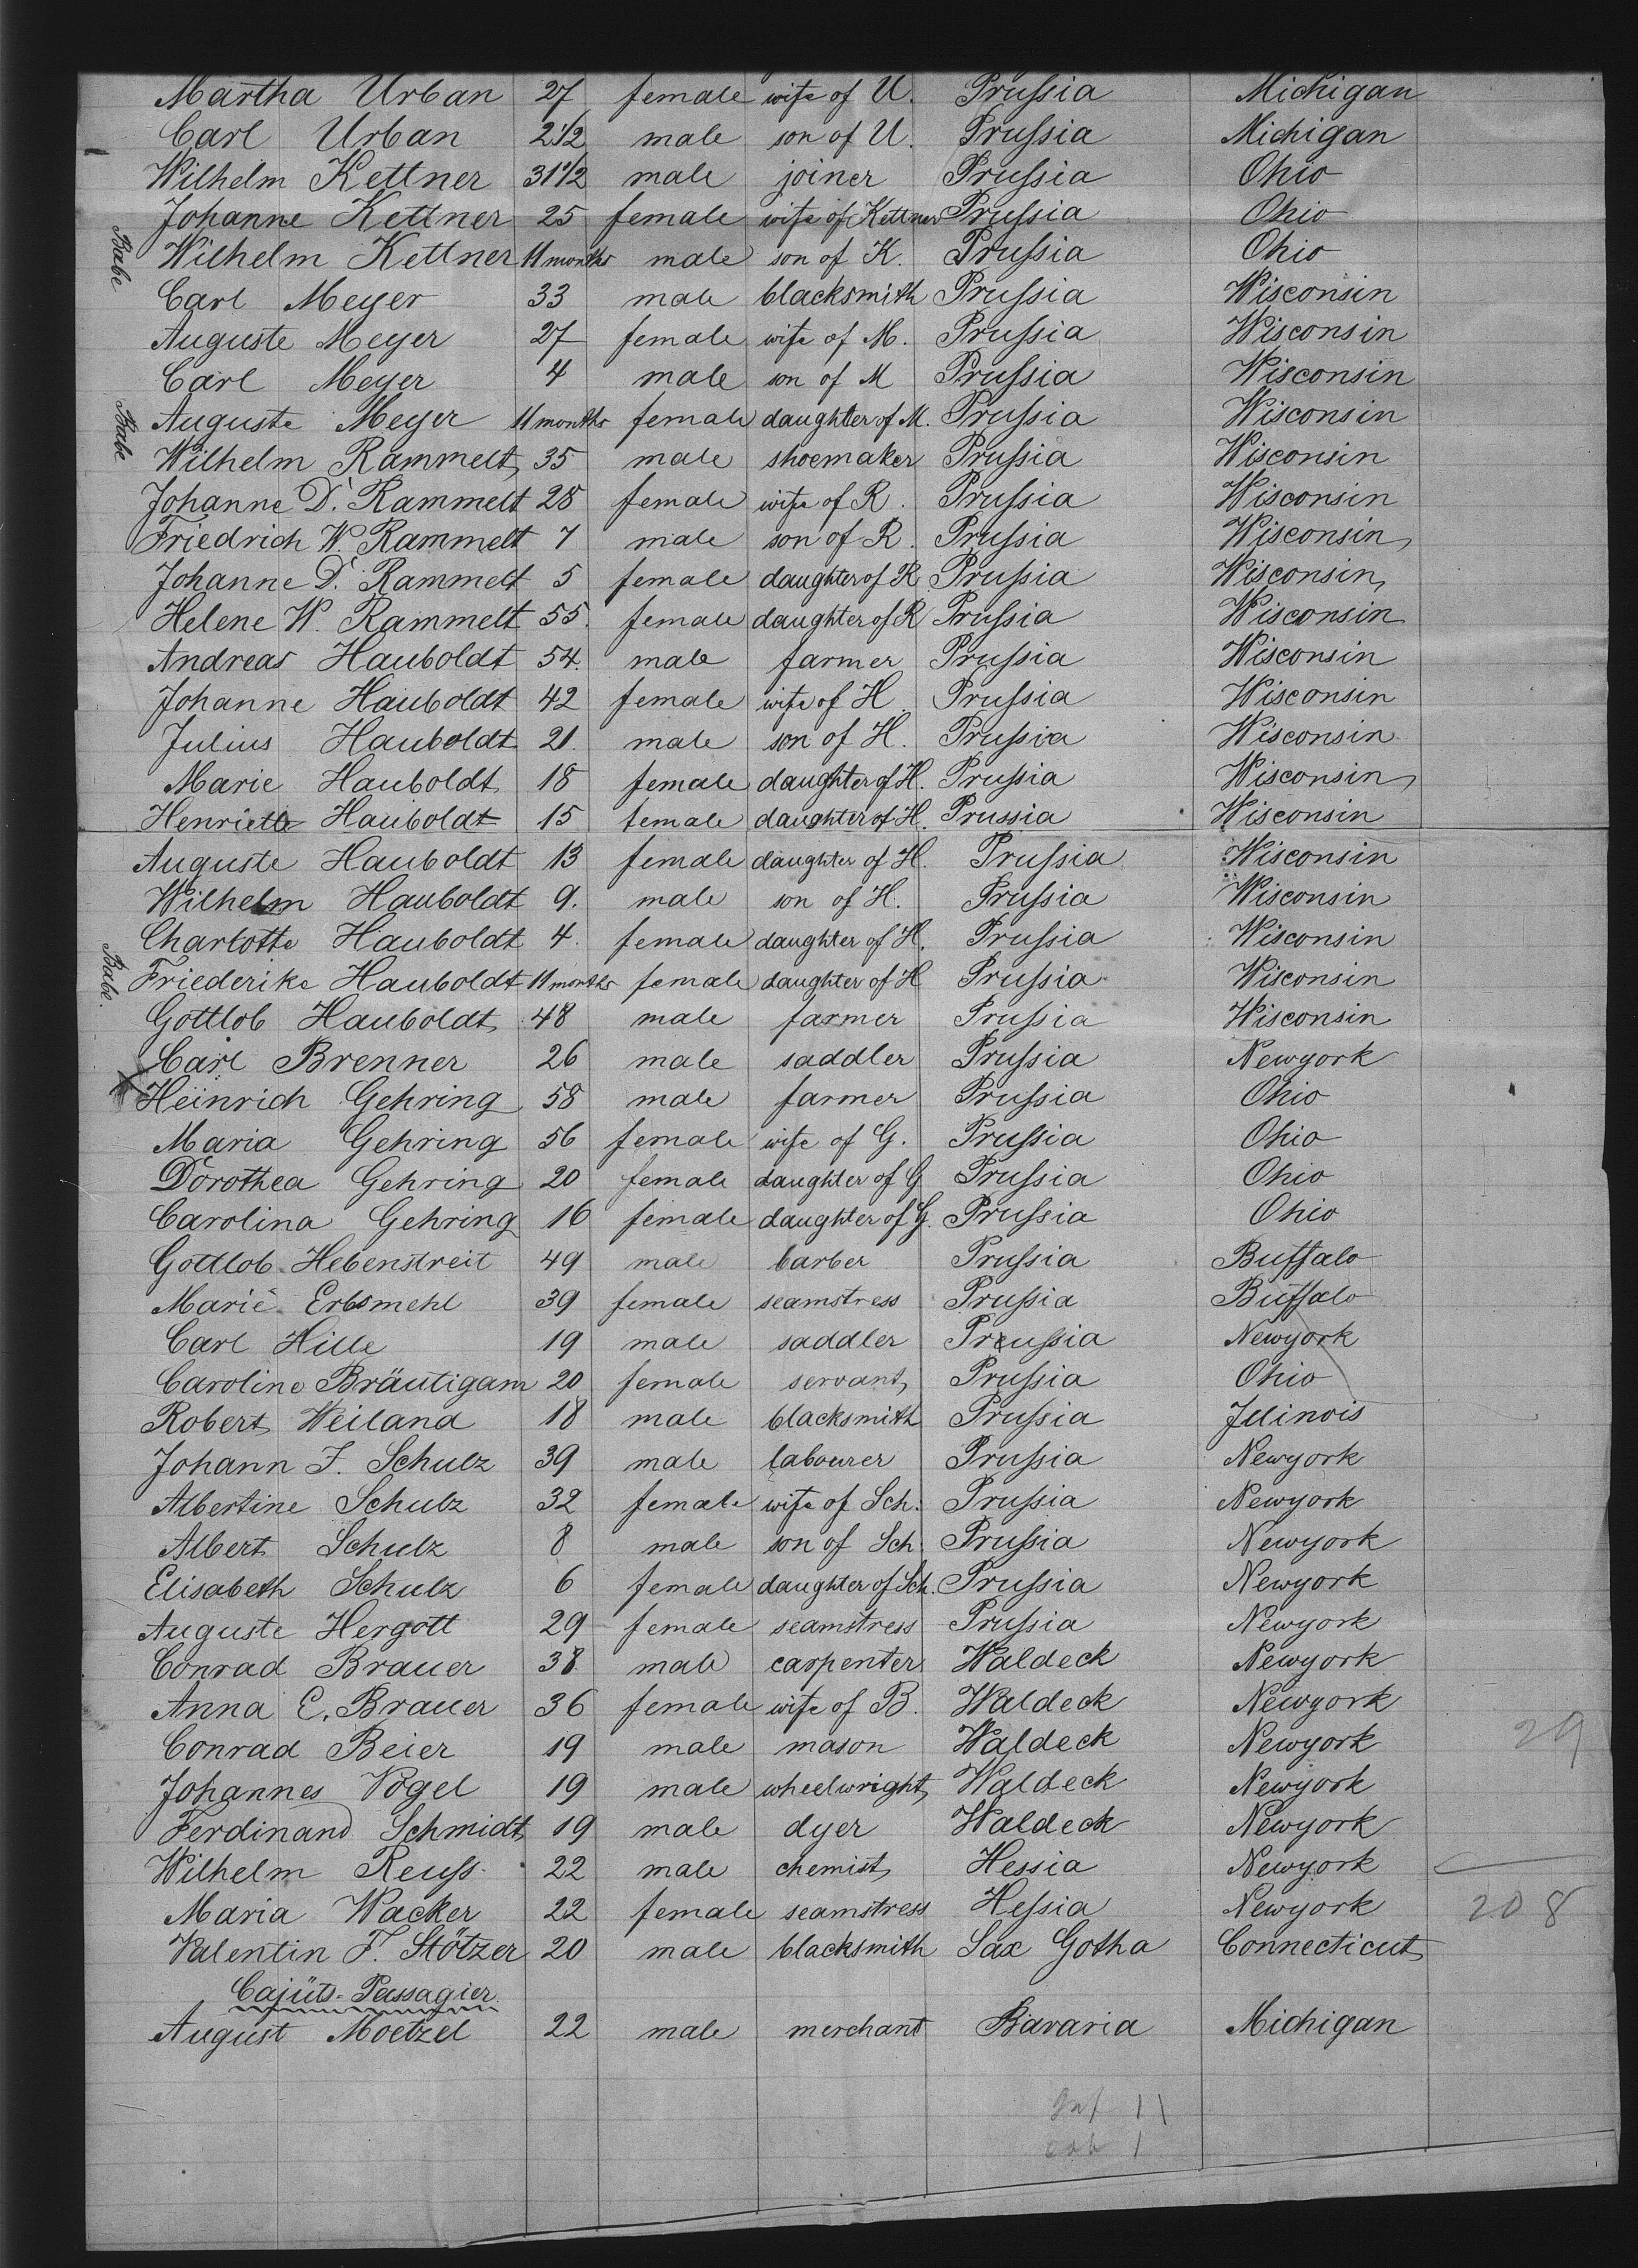 Martha Urban 27 female wife of U. Prussia Michigan
Carl Urban 2 1/2 male son of U. Prussia Michigan
Wilhelm Kettner 31 1/2 male joiner Prussia Ohio
Johanne Kettner 25 female wife of Kettner Prussia Ohio
Babe Wilhelm Kettner 11 months male son of K. Prussia Ohio
Carl Meyer 33 male blacksmith Prussia Wisconsin
Auguste Meyer 27 female wife of M. Prussia Wisconsin
Carl Meyer 4 male son of M Prussia Wisconsin
Babe Auguste Meyer 11 months female daughter of M. Prussia Wisconsin
Wilhelm Rammelt 35 male shoemaker Prussia Wisconsin
Johanne D. Rammelt 28 female wife of R. Prussia Wisconsin
Friedrich W. Rammelt 7 male son of R. Prussia Wisconsin
Johanne D. Rammelt 5 female daughter of R Prussia Wisconsin
Helene W. Rammelt 55. female daughter of R Prussia Wisconsin
Andreas Hauboldt 54. male farmer Prussia Wisconsin
Johanne Hauboldt 42 female wife of H. Prussia Wisconsin
Julius Hauboldt 21. male son of H. Prussia Wisconsin
Marie Hauboldt 18 female daughter of H. Prussia Wisconsin
Henriette Hauboldt 15 female daughter of H. Prussia Wisconsin
Auguste Hauboldt 13 female daughter of H. Prussia Wisconsin
Wilhelm Hauboldt 9. male son of H. Prussia Wisconsin
Charlotte Hauboldt 4. female daughter of H. Prussia Wisconsin
Babe. Friederike Hauboldt 11 months female daughter of H Prussia Wisconsin
Gottlob Hauboldt 48 male farmer Prussia Wisconsin
Carl Brenner 26 male saddler Prussia Newyork
Heinrich Gehring 58 male farmer Prussia Ohio
Maria Gehring 56 female wife of G. Prussia Ohio
Dorothea Gehring 20 female daughter of G Prussia Ohio
Carolina Gehring 16 female daughter of G. Prussia Ohio
Gottlob Hebenstreit 49 male barber Prussia Buffalo
Marie Erbsmehl 39 female seamstress Prussia Buffalo
Carl Hille 19 male saddler Preussia Newyork
Caroline Bräutigam 20 female servant Prussia Ohio
Robert Weiland 18 male blacksmith Prussia Illinois
Johann F. Schulz 39 male labourer Prussia Newyork
Albertine Schulz 32 female wife of Sch. Prussia Newyork
Albert Schulz 8 male son of Sch. Prussia Newyork
Elisabeth Schulz 6 female daughter of Sch. Prussia Newyork
Auguste Hergott 29 female seamstress Prussia Newyork
Conrad Brauer 38 male carpenter Waldeck Newyork
Anna E. Brauer 36 female wife of B. Waldeck Newyork
Conrad Beier 19 male mason Waldeck Newyork 29
Johannes Vogel 19 male wheelwright Waldeck Newyork
Ferdinand Schmidt 19 male dyer Waldeck Newyork
Wilhelm Reuss 22 male chemist Hessia Newyork
Maria Wacker 22 female seamstress Hessia Newyork 208
Valentin F. Stötzer 20 male blacksmith Sax Gotha Connecticut
Cajüts-Passagier.
August Moetzel 22 male merchant Bavaria Michigan
Inf 11
cab 1